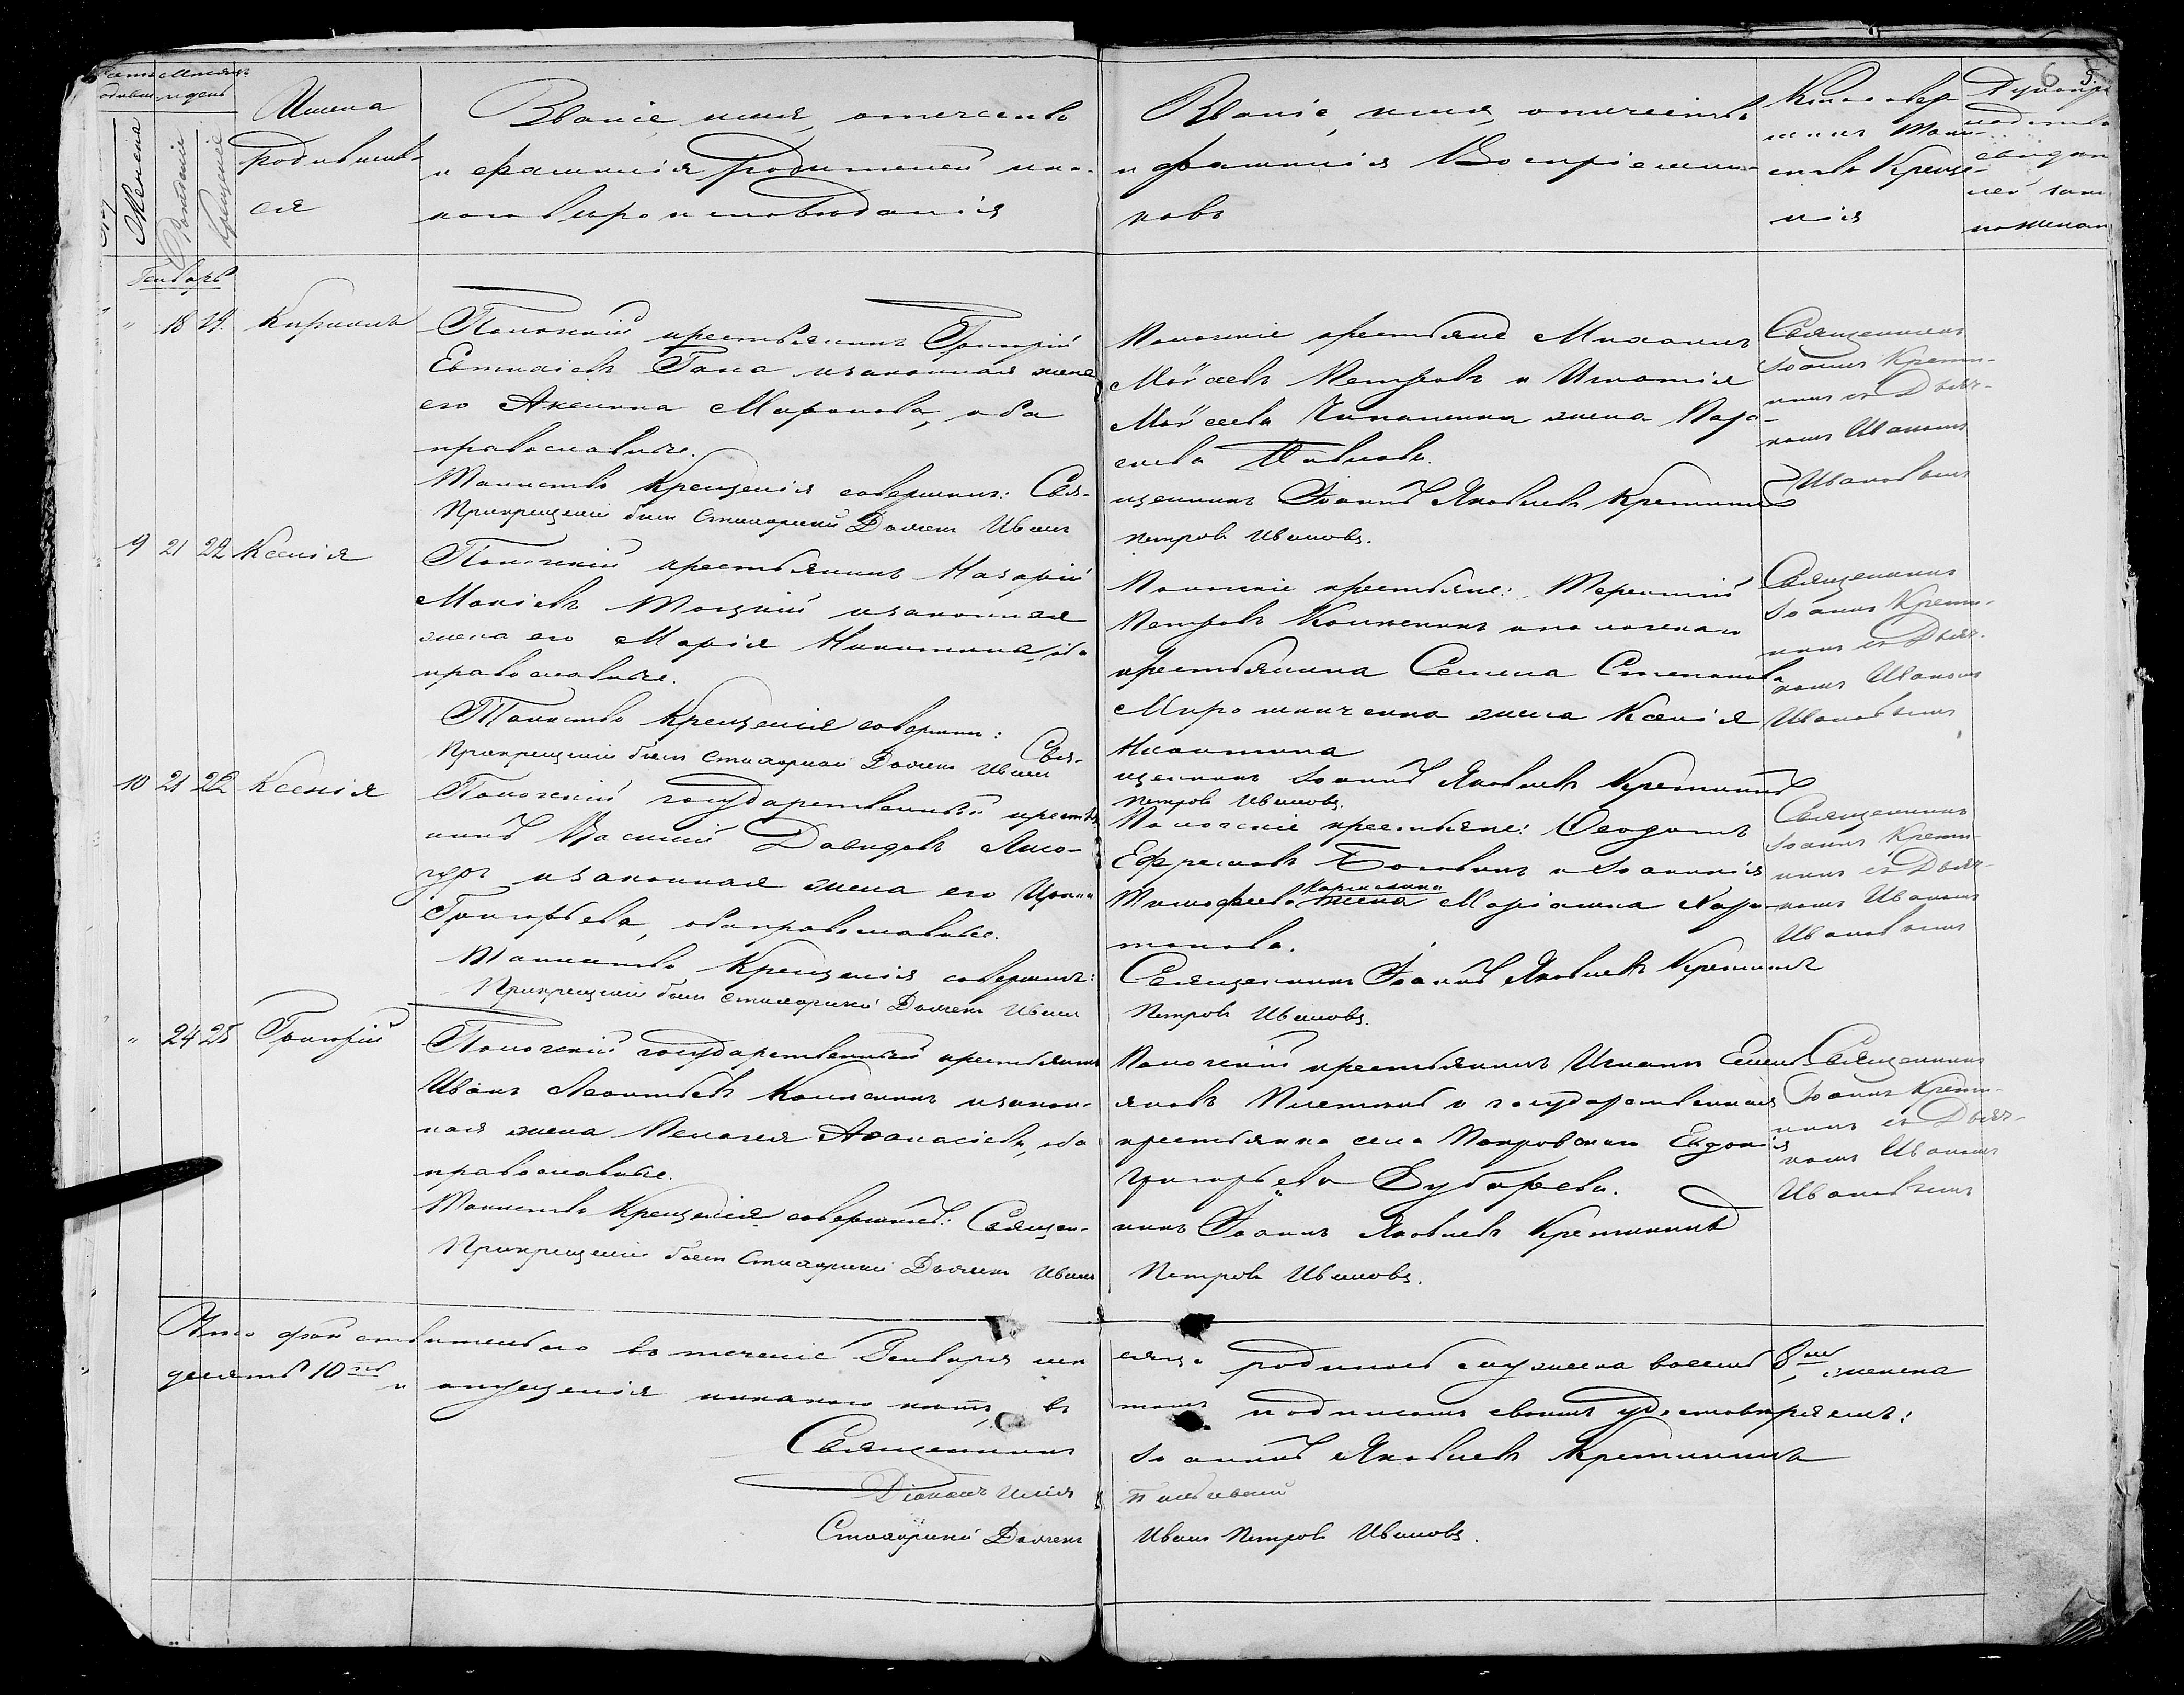 Имена
родивших-
ся
Званіе, имя, отчество
и фамилія родителей и ка-
кого вѣроисповѣданія
Званіе, имя, отчество
и фамилія Воспріемни-
ковъ
Кто совер-
шилъ Таин-
ство Креще-
нія
6 5.
Генварь
" 18 19. Кириллъ
Пологскій крестьянинъ Григорій
Евтихіевъ Гапа и законная жена
его Аксинія Миронова, оба
православные.
Таинство Крещенія совершилъ: Свя-
При крещеніи былъ Стихарный Дьячекъ Иванъ
Пологскіе крестьяне Михаилъ
Мойсеевъ Петровъ и Игнатія
Мойсеева жена Пара-
скева Павлова.
щенникъ Іоаннъ Яковлевъ Кретининъ
Петровъ Ивановъ.
Священникъ
Іоаннъ Крети-
нинъ съ Дьяч-
комъ Иваномъ
Ивановымъ
9 21 22 Ксенія
Пологскій крестьянинъ Назарій
Мокіевъ Тоцкій и законная
жена его Марія Никитина, оба
православные.
Таинство Крещенія соверши:
Свя-
При крещеніи былъ Стихарный Дьячекъ Иванъ
Пологскіе крестьяне: Терентій
Петровъ Калюжинъ и пологскаго
крестьянина Семена Степанова
Мирошниченка жена Ксенія
Никитина
щенникъ Іоаннъ Яковлевъ Кретининъ
Петровъ Ивановъ.
Священникъ
Іоаннъ Крети-
нинъ съ Дьяч-
комъ Иваномъ
Ивановымъ
10 21 22 Ксенія
Пологскій государственный крестья-
нинъ Василій Давидовъ
и законная жена его Ирина
Григорьева, оба православные.
Таинство Крещенія совершилъ:
При крещеніи былъ Стихарный Дьячекъ Иванъ
Пологскіе крестьяне: Ѳеодотъ
Ефремовъ и Іоанникія
Тимофеева жена Маріамна Хари-
тонова.
Священникъ Іоаннъ Яковлевъ Кретининъ
Петровъ Ивановъ.
Священникъ
Іоаннъ Крети-
нинъ съ Дьяч-
комъ Иваномъ
Ивановымъ
" 24 25 Григорій
Пологскій государственный крестьянинъ
Иванъ Леонтьевъ Калюжинъ и закон-
ная жена Пелагея Аѳанасіева, оба
православные.
Таинство Крещенія совершилъ: Священ-
При крещеніи былъ Стихарный Дьячекъ Иванъ
Пологскій крестьянинъ Игнатъ Емель-
яновъ и государственная
крестьянка села Покровскаго Евдокія
Григорьева Дубарева.
никъ Іоаннъ Яковлевъ Кретининъ
Петровъ Ивановъ.
Священникъ
Іоаннъ Крети-
нинъ съ Дьяч-
комъ Иваномъ
Ивановымъ
Что дѣйствительно въ теченіе Генваря мѣ
сяца родилось мужеска восемь 8мь, женска
десять 10ть и опущенія никакого нѣтъ, въ
томъ подписомъ своимъ удостовѣряемъ:
Священникъ Іоаннъ Яковлевъ Кретининъ
Діаконъ Илія
Стихарный Дьячекъ Иванъ Петровъ Ивановъ.